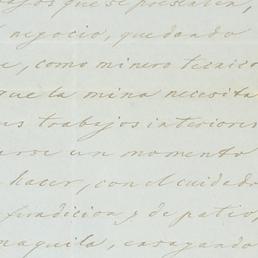 que se presenten,
negocio, quedando
e, como minero tecnico
que la mina necesita
us trabajos interiores
arse un momento
hacer, con el cuidado
fundicion y de patio,
maquila, ensayando